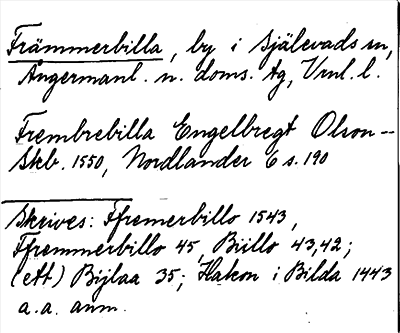 Främmerbilla, by i Själevads sn,
Ångermanl. n. doms. tg, Vrnl. l.
Frembrebilla Engelbregt Olson –
Skb. 1550, Nordlander 6 s. 190
Skrives: Ffremerbillo 1543,
Ffremmerbillo 45, Biillo 43,42;
(ett) Bijlaa 35; Hakon i Bilda 1443
a.a. anm.